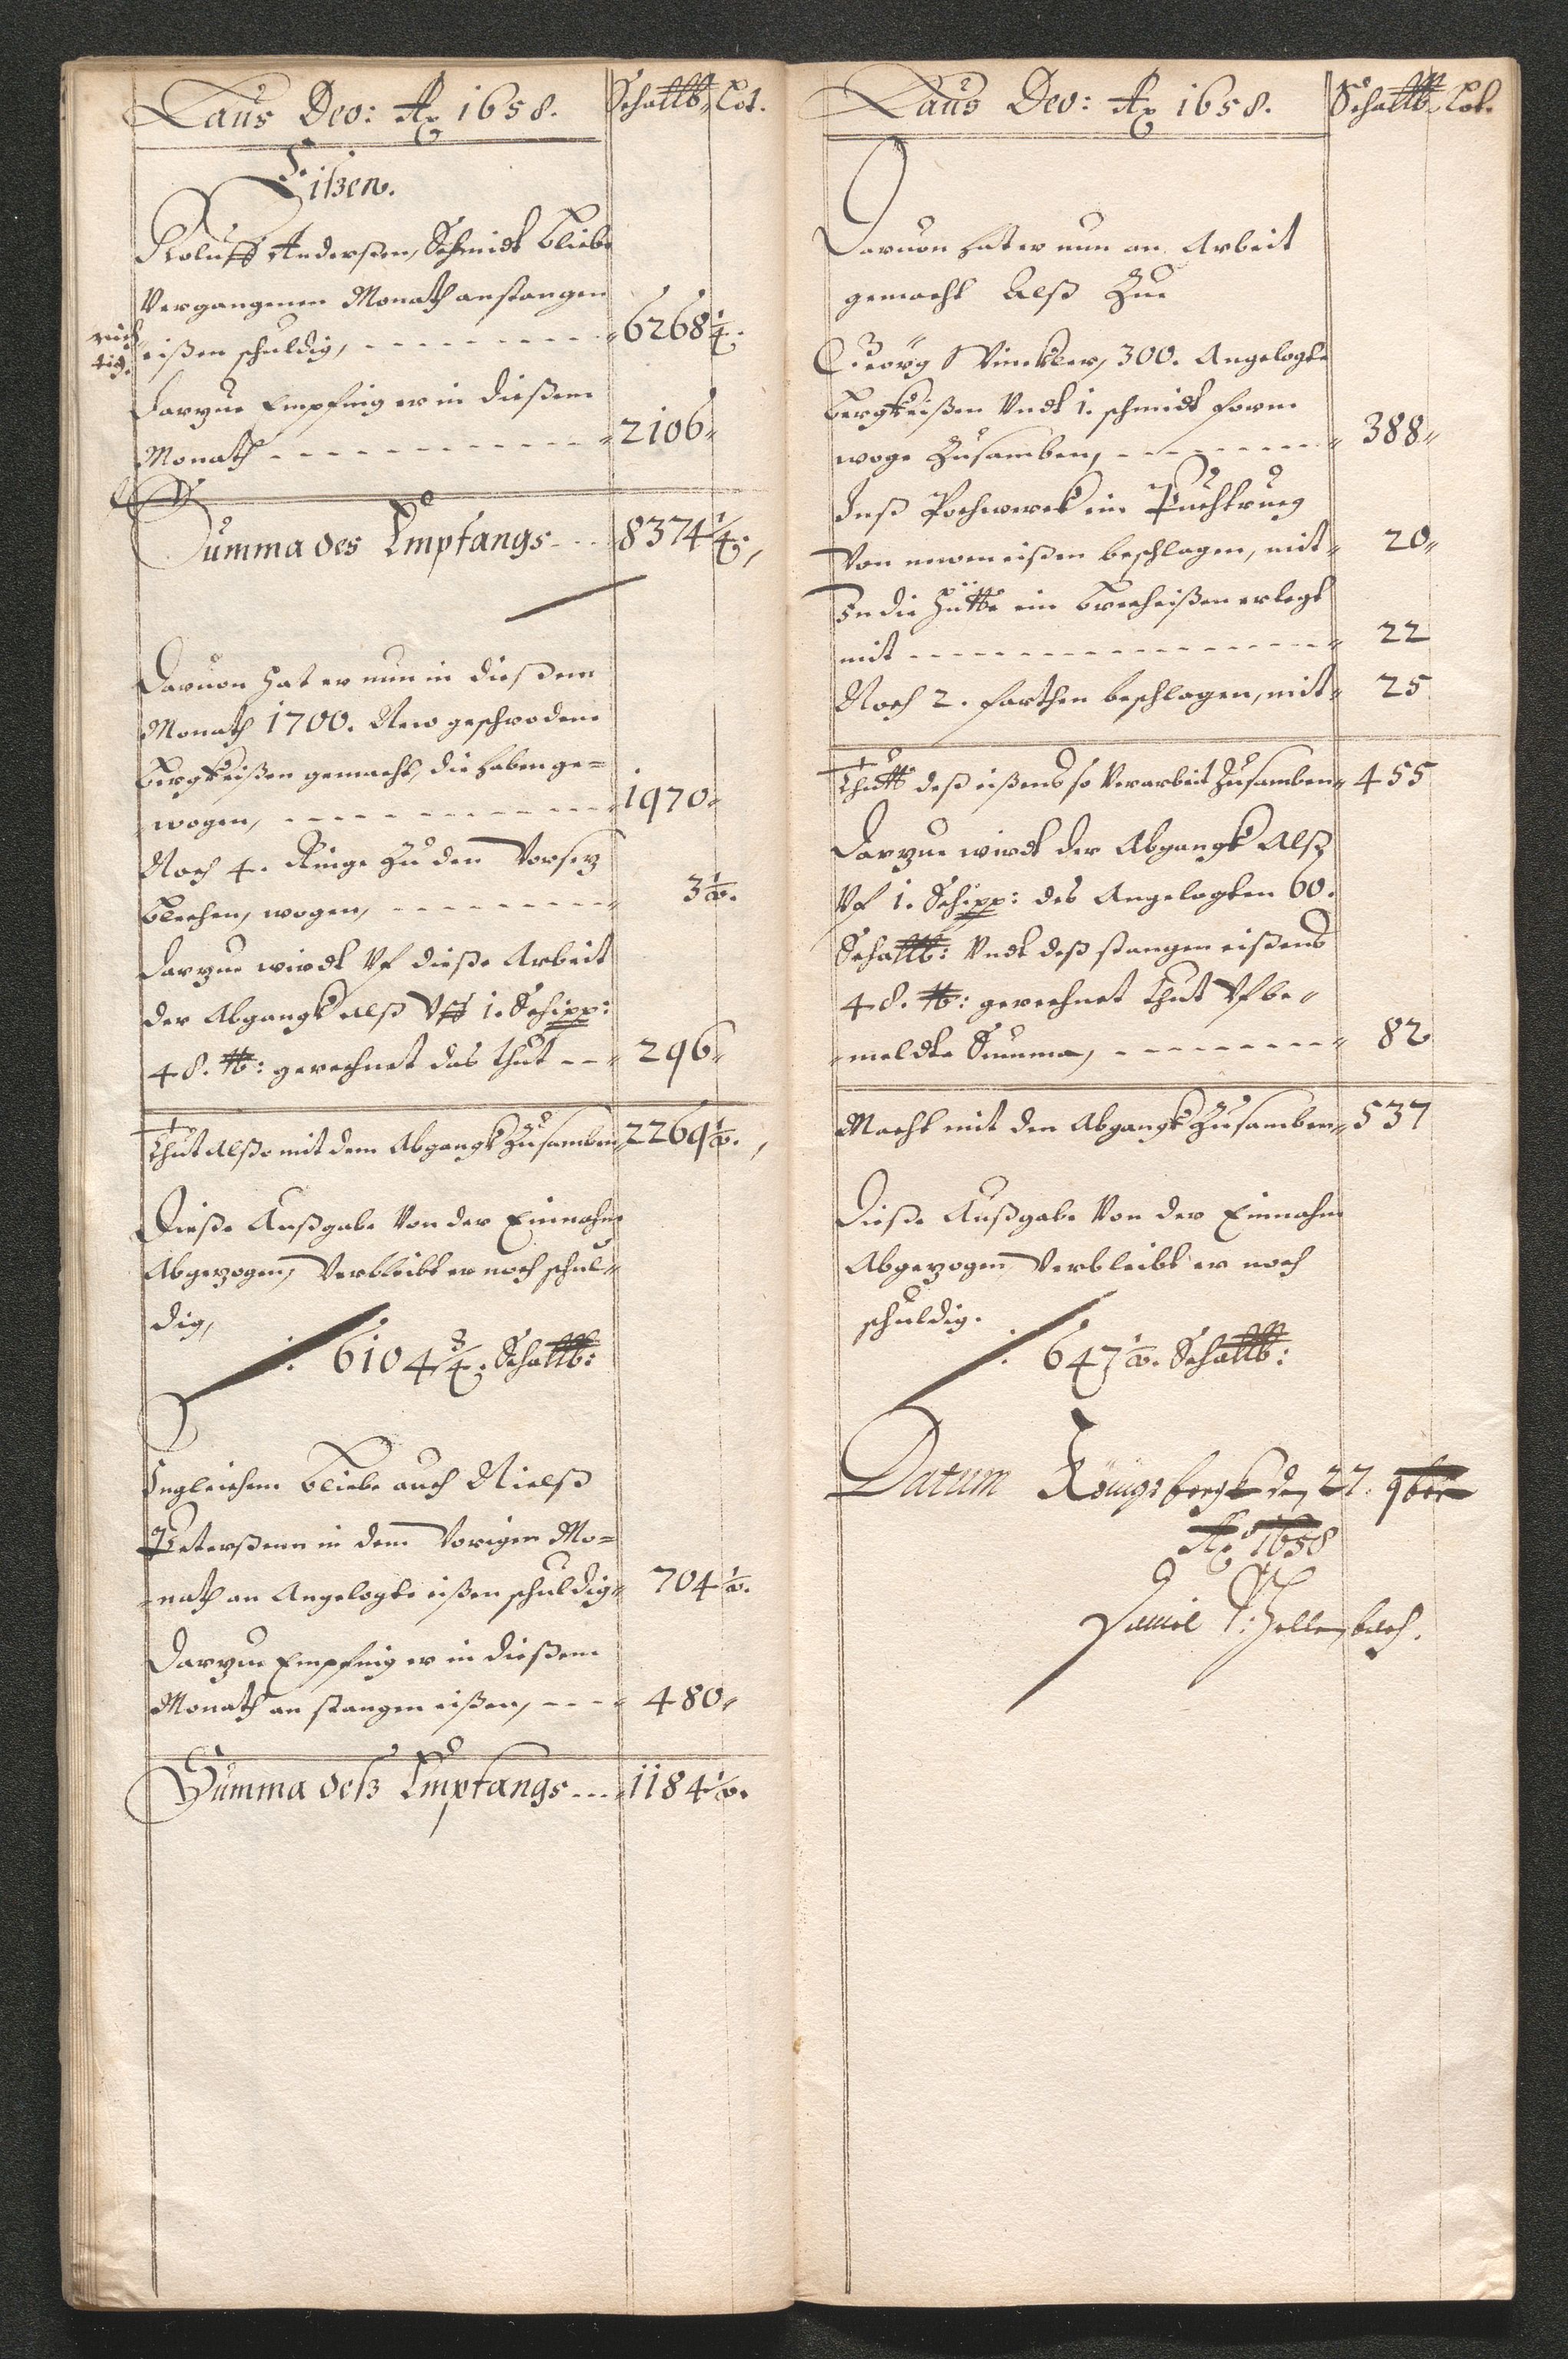 Laus Deo: Ao 1658.
Schallb. Lot.
Eißen.
Roluff Anderßen, Schmidt bliebe
Vergangenen Monath anstangen
rich
tig.
eißen schuldig, 6268 1/4.
Darzue Empfing er in dießem
Monath 2106
Summa des Empfangs 8374 1/4.
Daruon hat er nun in dießem
Monath 1700. New geschrodene
Bergkeißen gemacht, die haben ge=
wogen, 1970
Noch 4. Ringe Zu den Vorsez
blechen, wogen, 3 1/2.
Darzue wirdt Vf dieße Arbeit
der Abgangk alß Vff 1. Schipp:
48. lb: gerechnet das thut 296
Thut alßo mit dem Abgangk Zusamben 2269 1/2.
Dieße Außgabe Von der Einnahm
Abgezogen, Verbleibt er noch schul=
dig,
6104 3/4. Schallb:
Ingleichem bliebe auch Nielß
Peterßenn in dem Vorigen Mo=
nath an Angelogte eißen schuldig 704 1/2.
Darzue Empfing er in dießem
Monath an stangen eißen, 480
Summa deß Empfangs 1184 1/2.
Laus Deo: Ao 1658.
Schallb. Lot.
Daruon hat er nun an Arbeit
gemacht Alß Zue
Georg Winckler, 300. Angelogte
Bergkeißen Vndt 1. schmidt form
woge Zusamben, 388
Inß Pochwerck ein
Von newen eißen beschlagen, mit 20
In die Hütte ein brecheißen erlegt
mit 22
Noch 2. farthen beschlagen, mit 25
Thutt deß eißens so Verarbeit Zusamben 455
Darzue wirdt der Abgangk Alß
Vf 1. Schipp: des Angelogten 60.
Schallb: Vndt deß stangen eißens
48. lb: gerechnet thut Vf be=
meldte Summa, 82
Macht mit den Abgangk Zusamben 537
Dieße Außgabe Von der Einnahm
Abgezogen Verbleibt er noch
schuldig.
647 1/2. Schallb:
Datum Königsbergk den 27. 9ber
Ao 1658